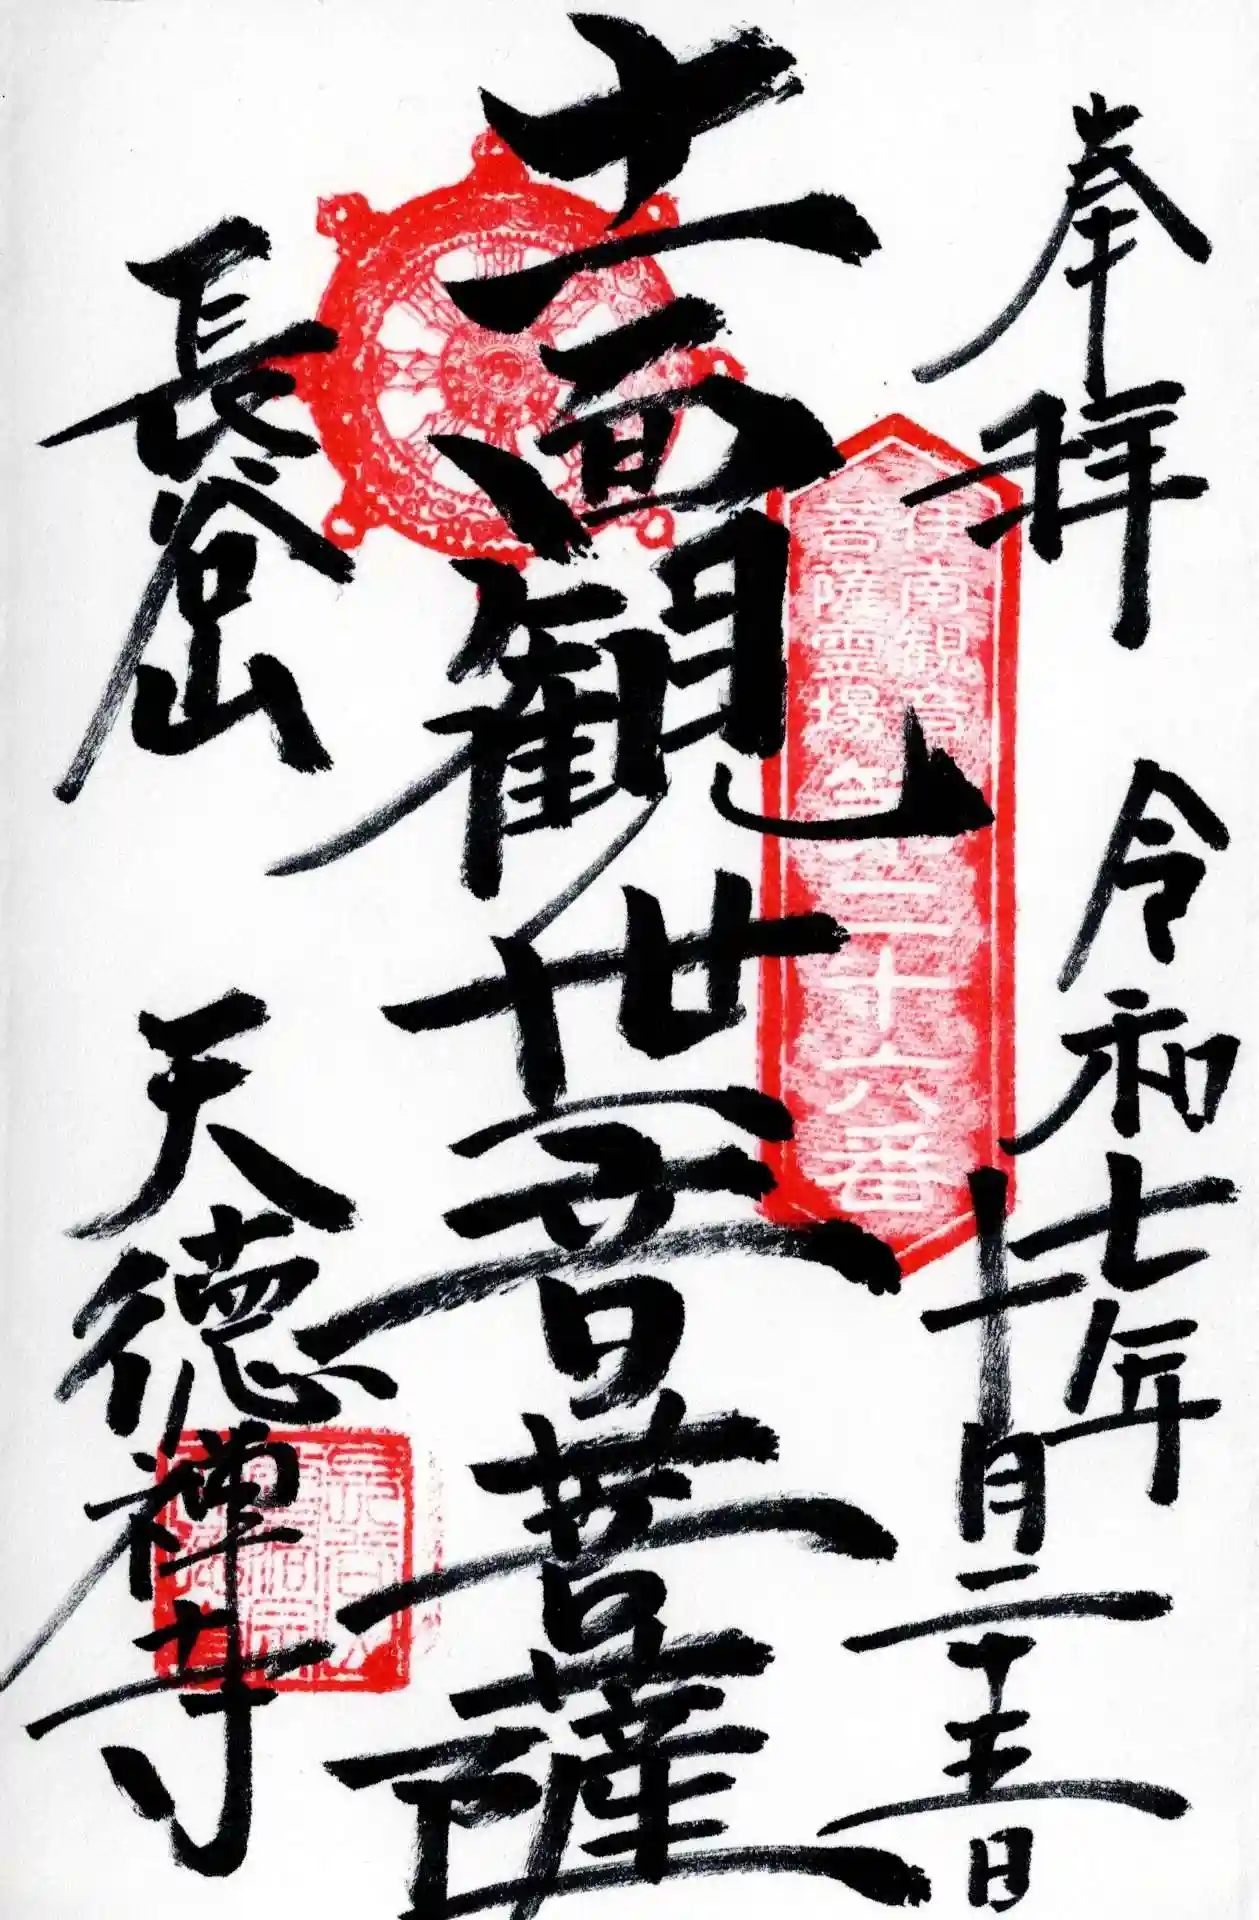 奉拝
令和七年
十月二十五日
伊南観音
菩薩霊場
第二十六番
十一面観世音菩薩
長谷山
天徳禅寺